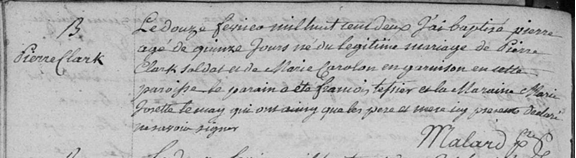 B
Pierre Clark
Le douze fevrier mil huit cent deux J'ai baptizé pierre
age de quinze Jours né du legitime mariage de Pierre
Clark soldat et de Marie Carolon en garnison en cette
paroisse le parain a eté francois tessier et la Maraine Marie
Josette lemay qui ont ainsy que les pere et mere icy presens declaré
ne savoir signer
Malard ptre